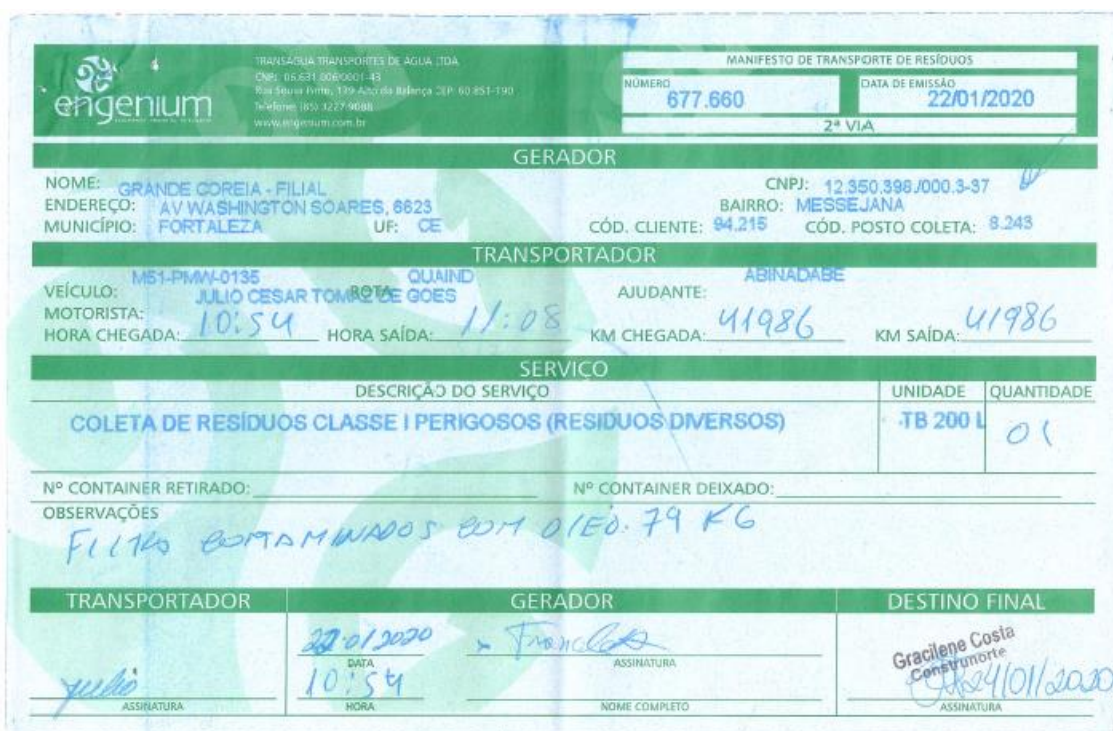 engenium
TRANSÁGUA TRANSPORTES DE ÁGUA LTDA
CNPJ: 06.631.006/0001-43
Rua Sousa Pinto, 139 Alto da Balança CEP: 60.851-190
Telefone: (85) 3227-9088
www.engenium.com.br
MANIFESTO DE TRANSPORTE DE RESÍDUOS
NÚMERO
677.660
DATA DE EMISSÃO
22/01/2020
2ª VIA
GERADOR
NOME: GRANDE COREIA - FILIAL CNPJ: 12.350.396./000.3-37
ENDEREÇO: AV WASHINGTON SOARES, 6623 BAIRRO: MESSEJANA
MUNICÍPIO: FORTALEZA UF: CE CÓD. CLIENTE: 94.215 CÓD. POSTO COLETA: 8.243
TRANSPORTADOR
VEÍCULO: M51-PMW-0135 ROTA: QUAIND AJUDANTE: ABINADABE
MOTORISTA: JULIO CESAR TOMAZ DE GOES
HORA CHEGADA: 10:54 HORA SAÍDA: 11:08 KM CHEGADA: 41986 KM SAÍDA: 41986
SERVIÇO
DESCRIÇÃO DO SERVIÇO UNIDADE QUANTIDADE
COLETA DE RESÍDUOS CLASSE I PERIGOSOS (RESIDUOS DIVERSOS) TB 200 L 01
Nº CONTAINER RETIRADO: Nº CONTAINER DEIXADO:
OBSERVAÇÕES
FILTRO CONTAMINADOS COM OLEO. 79 KG
TRANSPORTADOR GERADOR DESTINO FINAL
22/01/2020
DATA ASSINATURA
Gracilene Costa
Construnorte
julio 10:54 24/01/2020
ASSINATURA HORA NOME COMPLETO ASSINATURA